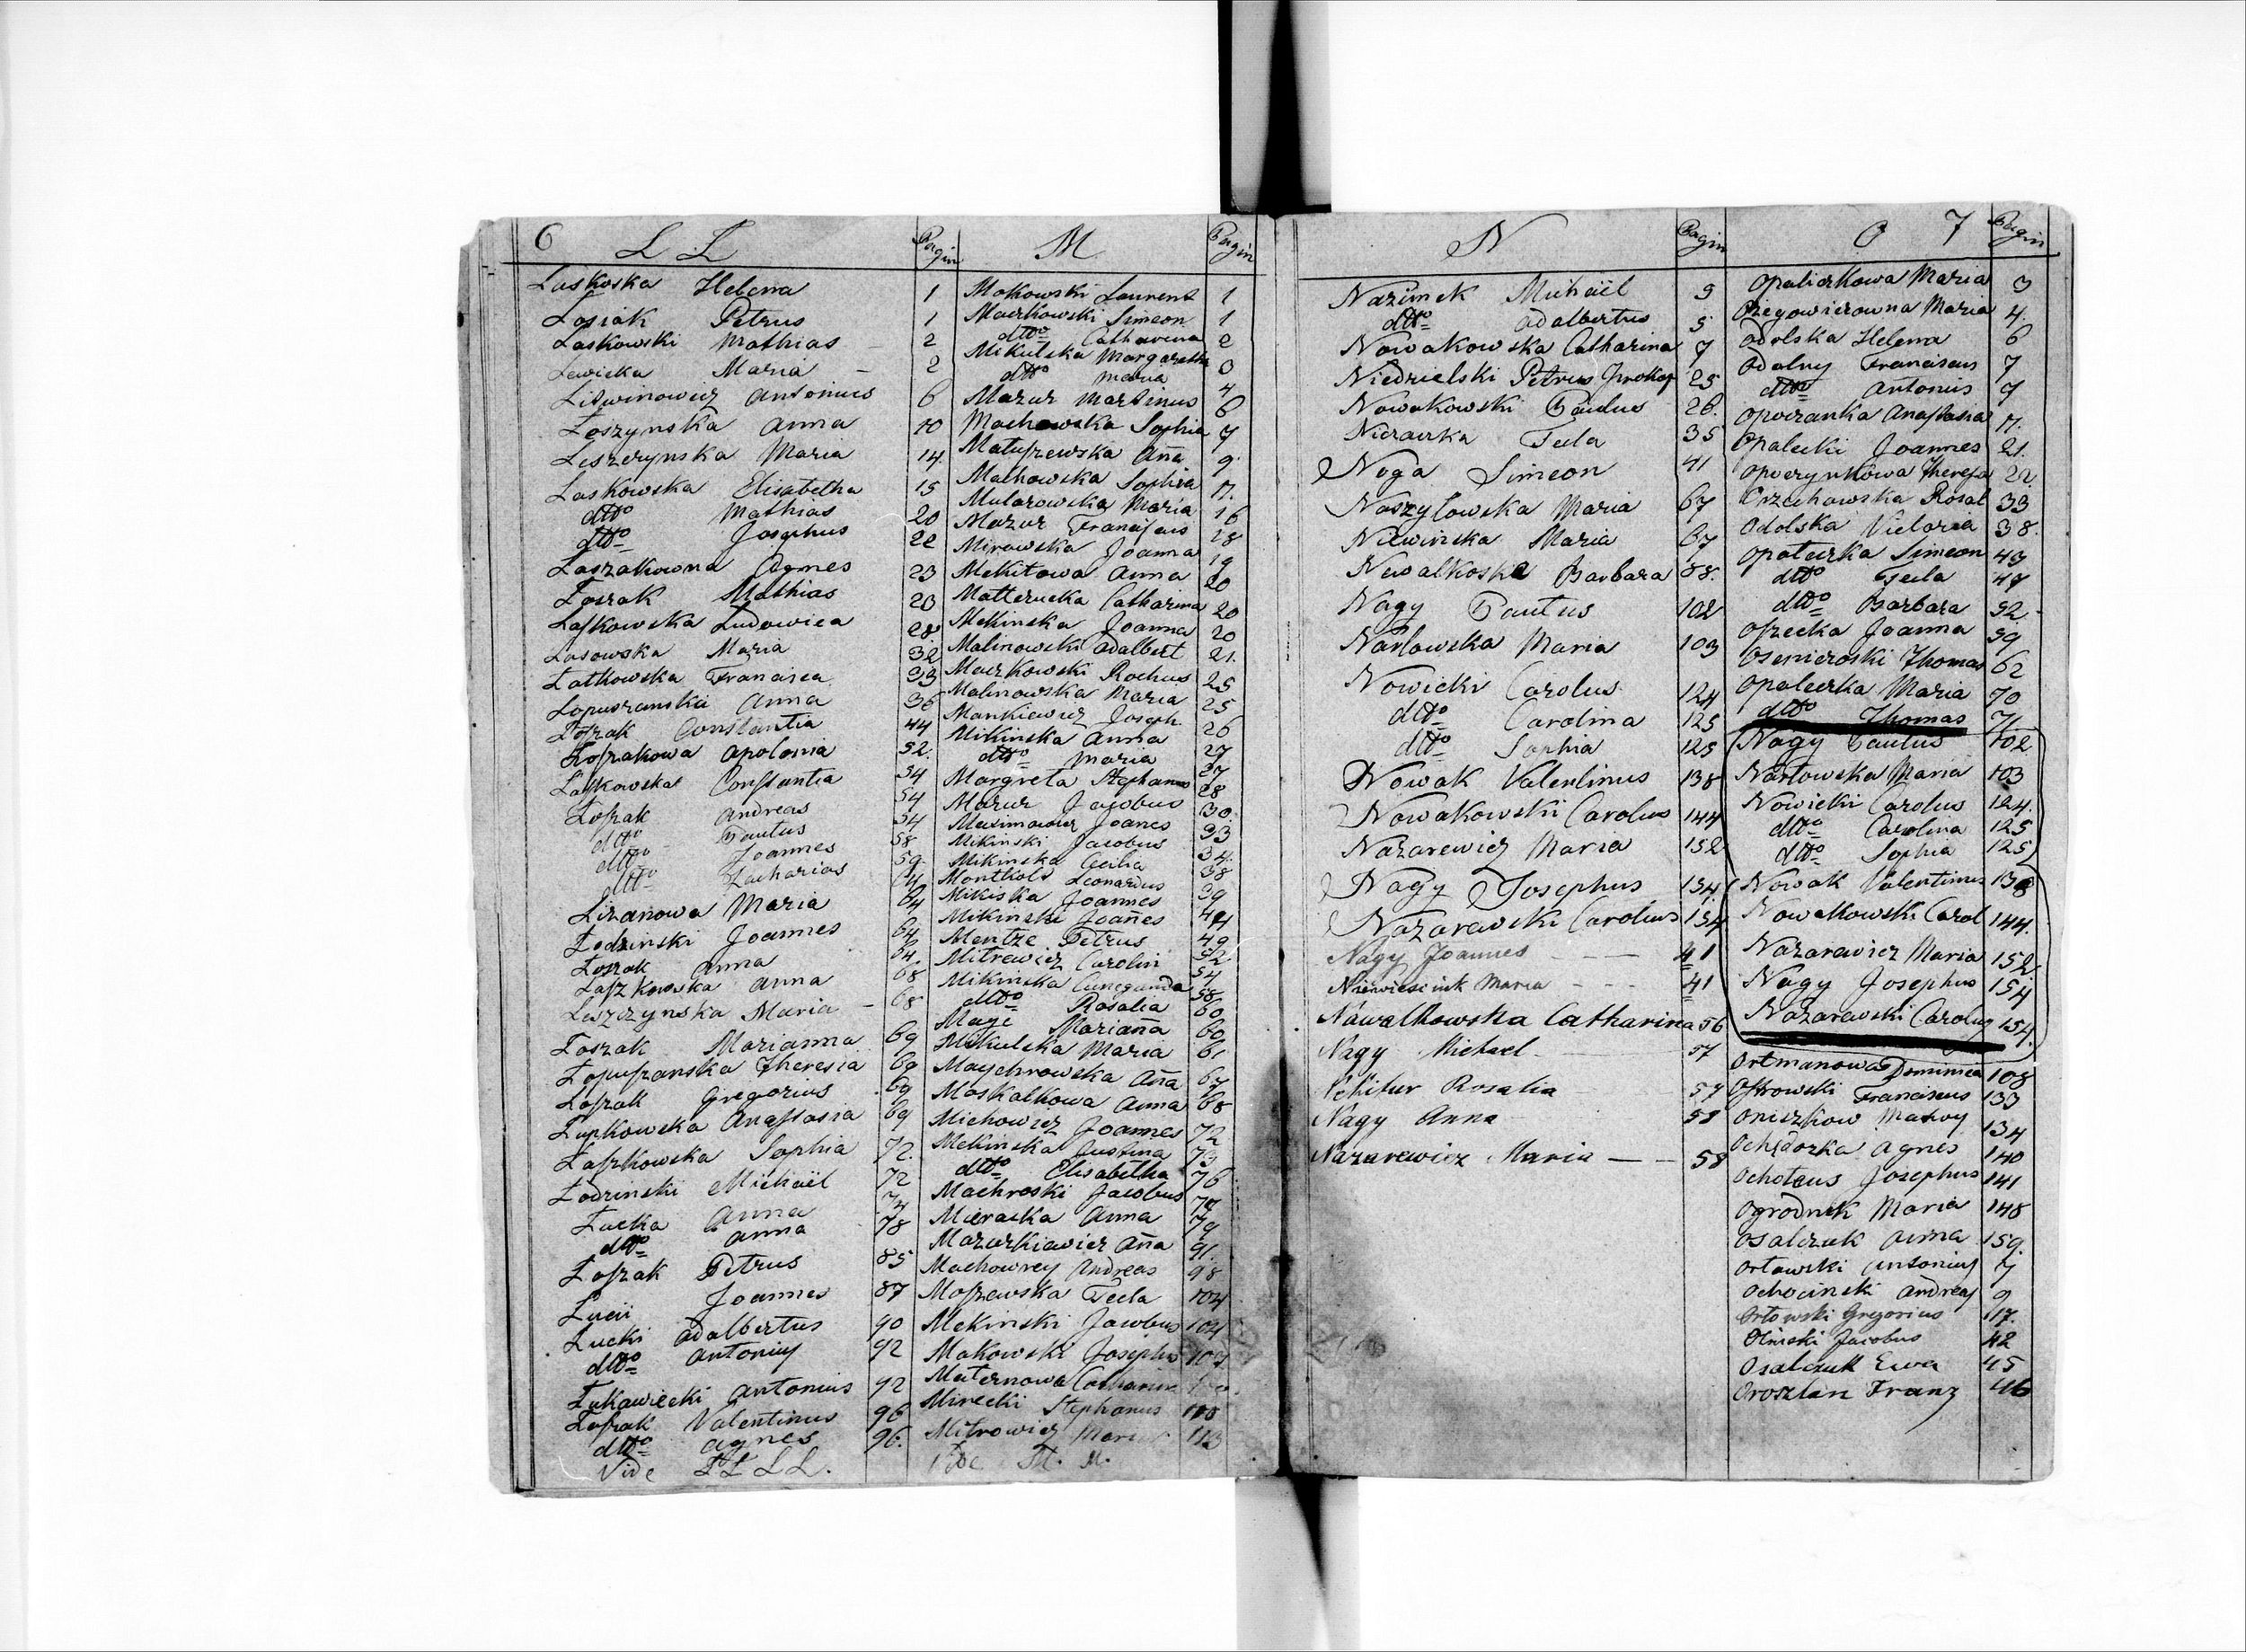 6 L Ł Pagin
Laskoska Helena 1
Łosiak Petrus 1
Laskowski Mathias 2
Lewicka Maria 2
Litwinowicz Antonius 6
Łoszynska Anna 10
Leszczynska Maria 14
Laskowska Elisabetha 15
dtto Mathias 20
dtto Josephus 22
Łaszakowna Agnes 23
Łoszak Mathias 23
Laskowska Ludowica 28
Lasowska Maria 32
Łatkowska Francisca 33
Łopuszanska Anna 36
Łoszak Constantia 44
Łoszakowa Apolonia 52
Laskowska Constantia 54
Łoszak Andreas 54
dtto Paulus 54
dtto Joannes 58
dtto Zacharias 59
Lizanowa Maria 64
Łodzinski Joannes 64
Łoszak Anna 64
Laszkowska Anna 68
Leszczynska Maria 68
Łoszak Marianna 69
Łopuszanska Theresia 69
Łoszak Gregorius 69
Łupkowska Anastasia 69
Łaszkowska Sophia 72
Łodzinski Michaël 72
Łucka Anna
dtto Anna 78
Łoszak Petrus 85
Lucii Joannes 87
Łucki Adalbertus 90
dtto Antonius 92
Łukawiecki Antonius 92
Łoszak Valentinus 96
dtto Agnes 96
Vide Ł Ł L L.
M Pagin
Makowski Laurent 1
Maczkowski Simeon 1
dtto Catharina 2
Mikulska Margaretha 3
dtto Maria 4
Mazur Martinus 6
Machowska Sophia 7
Matuszewska Ana 9
Malkowska Sophia 11.
Mularowska Maria 16
Mazur Franciscus 18
Mirowska Joanna 19
Mekitowa Anna 20
Matterucka Catharina 20
Mekinska Joanna 20
Malinowski Adalbert 21.
Maczkowski Rochus 25
Malinowska Maria 25
Mankiewicz Joseph 26
Mikinska Anna 27
dtto Maria 27
Margreta Stephanus 28
Mazur Jacobus 30
Maximowicz Joanes 33
Mikinski Jacobus 34
Mikinska Cecilia 38
Montkols Leonardus 39
Mikiska Joannes
Mikinski Joanes
Mentze Petrus 49
Mitrewicz Carolin 52
Mikinska Cunegunda 54
dtto Rosalia 58
Mage Mariana 60
Mikulska Maria 60
Maychrowska Ana 61
Moskalkowa Anna 67
Michowicz Joannes 68
Mekinska Justina 72
dtto Elisabetha 73
Machroski Jacobus 76
Mieracka Anna
Mazurkiewicz Ana 79
Machowrey Andreas 91
Moszewska Tecla 98
Mekinski Jacobus 104
Makowski Josephus 104
Maternowa Catharin
Mirecki Stephanus 110
Mitrowicz Maria 113
Vide M. M.
N Pagin
Nazimek Michaël 3
dtto Adalbertus 5
Nowakowska Catharina 7
Niedzielski Petrus Prokop 25
Nowakowski Paulus 26.
Niezawska Tecla 35
Noga Simeon 41
Naszyłowska Maria 67
Niewinska Maria 67
Newalkoska Barbara 88.
Nagy Paulus 102
Narłowska Maria 103
Nowicki Carolus 124
dtto Carolina 125
dtto Sophia 125
Nowak Valentinus 138
Nowakowski Carolus 144
Nazarewicz Maria 152
Nagy Josephus 154.
Nazarewski Carolus 154
Nagy Joannes 41
Niewiescink Maria 41
Nawalkowska Catharina 56
Nagy Michael 57
Nekifur Rosalia 57
Nagy Anna 58
Nazarewicz Maria 58
O 7 Pagin
Opaliczkowa Maria 3
Ozegowiczowna Maria 4.
Odolska Helena 6
Odolny Franciscus 7
dtto Antonius 7
Opoczanka Anastasia 11.
Opalecki Joannes 21.
Opoczynkowa Theresa 22
Orzechowska Rosal 33
Odolska Victoria 38.
Opaleczka Simeon 43
dtto Tecla 49
dtto Barbara 52
Opecka Joanna 59
Osmieroski Thomas 62
Opaleczka Maria 70
dtto Thomas 71
Nagy Paulus 102
Narłowska Maria 103
Nowicki Carolus 124.
dtto Carolina 125
dtto Sophia 125
Nowak Valentinus 138
Nowalkowski Carol 144.
Nazarewicz Maria 152.
Nagy Josephus 154
Nazarewski Carolus 154.
Ortmanowa Dominica 108
Ostrowski Franciscus 133
Oniszkow Matwy 134
Ochędozka Agnes 140
Ochotcus Josephus 141
Ogrodnik Maria 148
Osalczuk Anna 159.
Orłowski Antonius 7
Ochocinski Andreas 9
Orłowski Gregorius 117.
Olinski Jacobus 42
Osalczuk Ewa 45
Oroszlan Franz 46